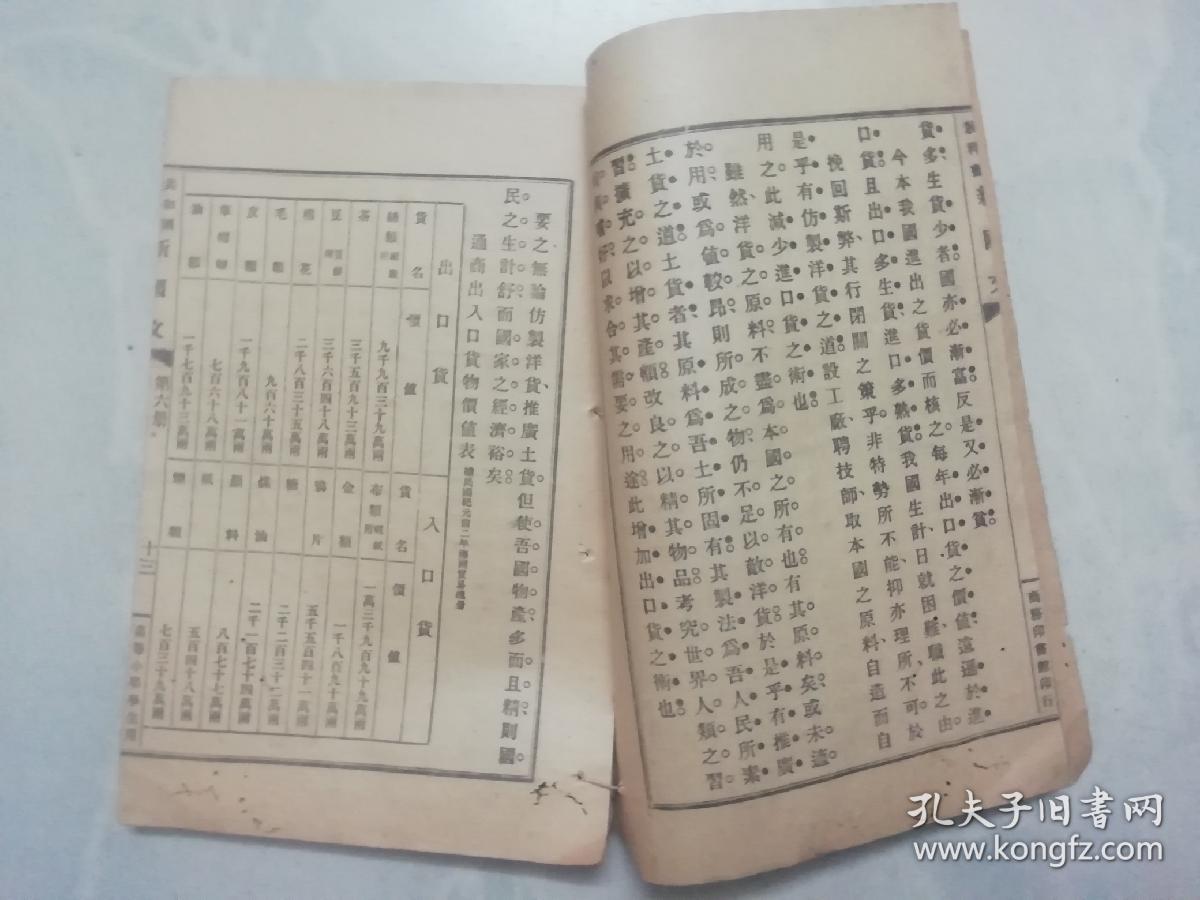 新國文
商務印書館印行
貨多生貨少者國亦必漸富反是又必漸貧
今本我國進出之貨價而核之每年出口貨之價值遠遜於進
口貨且出口多生貨進口多熟貨我國生計日就困難職此之由
挽回斯弊其行閉關之策乎非特勢所不能抑亦理所不可於
是乎有仿製洋貨之道設工廠聘技師取本國之原料自造而自
用之此減少進口貨之術也
雖然洋貨之原料不盡爲本國之所有也有其原料矣或未適
於用或爲值較昂則所成之物仍不足以敵洋貨於是乎有推廣
土貨之道土貨者其原料爲吾土所固有其製法爲吾人民所素
習擴充之以增其產額改良之以精其物品考究世界人類之習
以求合其需要之用途此增加出口貨之術也
要之無論仿製洋貨推廣土貨但使吾國物產多而且精則國
民之生計舒而國家之經濟裕矣
通商出入口貨物價值表
出口貨 入口貨
貨名 價值 貨名 價值
九千九百三十九萬兩 布類 一萬三千九百九十九萬兩
茶 三千五百九十三萬兩 金類 一千八百九十萬兩
豆 三千六百四十八萬兩 鴉片 五千五百四十一萬兩
棉花 二千八百三十五萬兩 糖 二千二百三十二萬兩
毛類 九百六十萬兩 煤油 二千一百七十四萬兩
皮類 一千九百八十一萬兩 顏料 八百七十七萬兩
草帽緶 七百六十八萬兩 紙 五百四十八萬兩
油類 一千七百九十三萬兩 煙類 七百三十九萬兩
共和國新國文 第六册 十三 高等小學學生用
孔夫子旧书网
www.kongfz.com